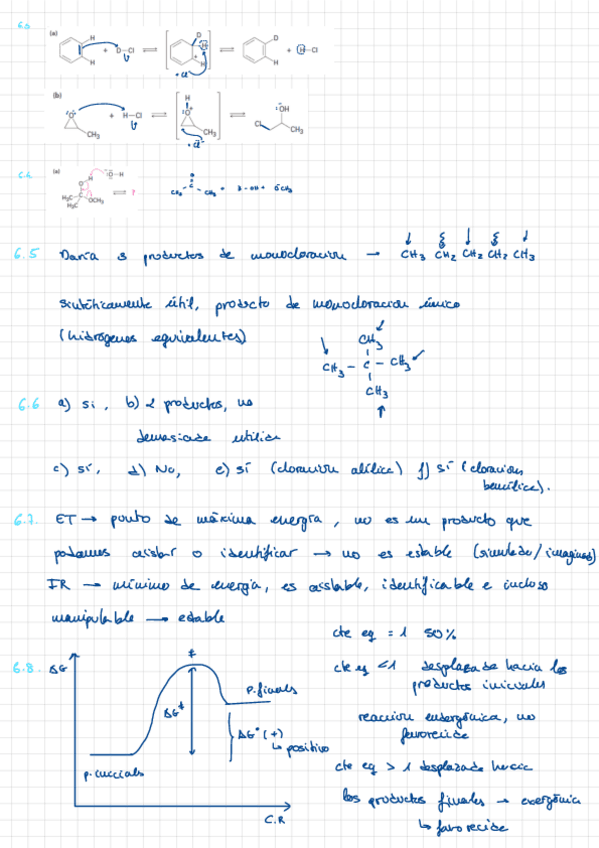 6.3
(a)
H
H
+ D-Cl
D
H
H
:Cl⁻
D
+ H-Cl
(b)
:O:
CH₃
+ H-Cl
H
:O⁺
CH₃
:Cl⁻
:ÖH
Cl
CH₃
(a)
H
Ö-H
H₃C
H₃C
OCH₃
?
CH₃ - C - CH₃ +
6.5 Daría 3 productos de monocloración → CH₃ CH₂ CH₂ CH₂ CH₃
sintéticamente útil, producto de monocloración único
(hidrógenos equivalentes)
CH₃
CH₃ - C - CH₃
CH₃
6.6 a) si, b) 2 productos, no
demasiado utilidad
c) sí, d) No, e) sí (cloración alílica) f) sí (cloración
bencílica).
6.7. ET → punto de máxima energía, no es un producto que
podamos aislar o identificar → no es estable (simulado/imaginado)
IR → mínimo de energía, es aislable, identificable e incluso
manipulable → estable
cte eq = 1 50%
6.8. ΔG
‡
p. finales
ΔG‡
ΔG° (+)
↳ positivo
p. iniciales
C.R
cte eq < 1 desplazada hacia los
productos iniciales
reacción endergónica, no
favorecida
cte eq > 1 desplazada hacia
los productos finales → exergónica
↳ favorecida